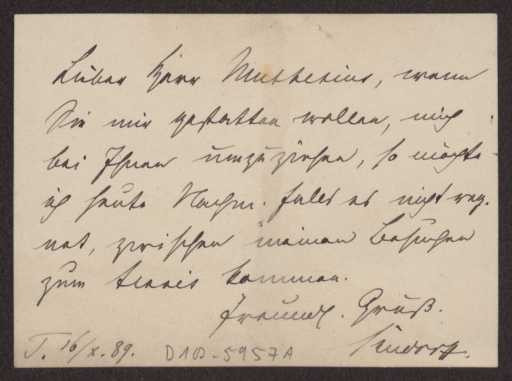 Lieber Herr Muthesius, wenn
Sie mir gestatten wollen, mich
bei Ihnen umzuziehen, so möchte
ich heute Nachm. falls es nicht reg-
net, zwischen meinen Besuchen
zum tennis kommen.
Freundl. Gruß.
T. 16/X. 89. D102-5957A